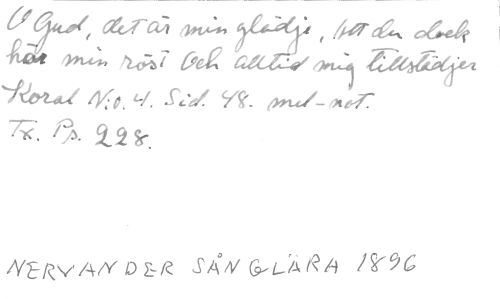 O Gud, det är min glädje, att du dock
hör min röst Och alltid mig tillstädjer
Koral N:o. 4. Sid. 48. mel-not.
Tx. Ps. 228.
NERVANDER SÅNGLÄRA 1896